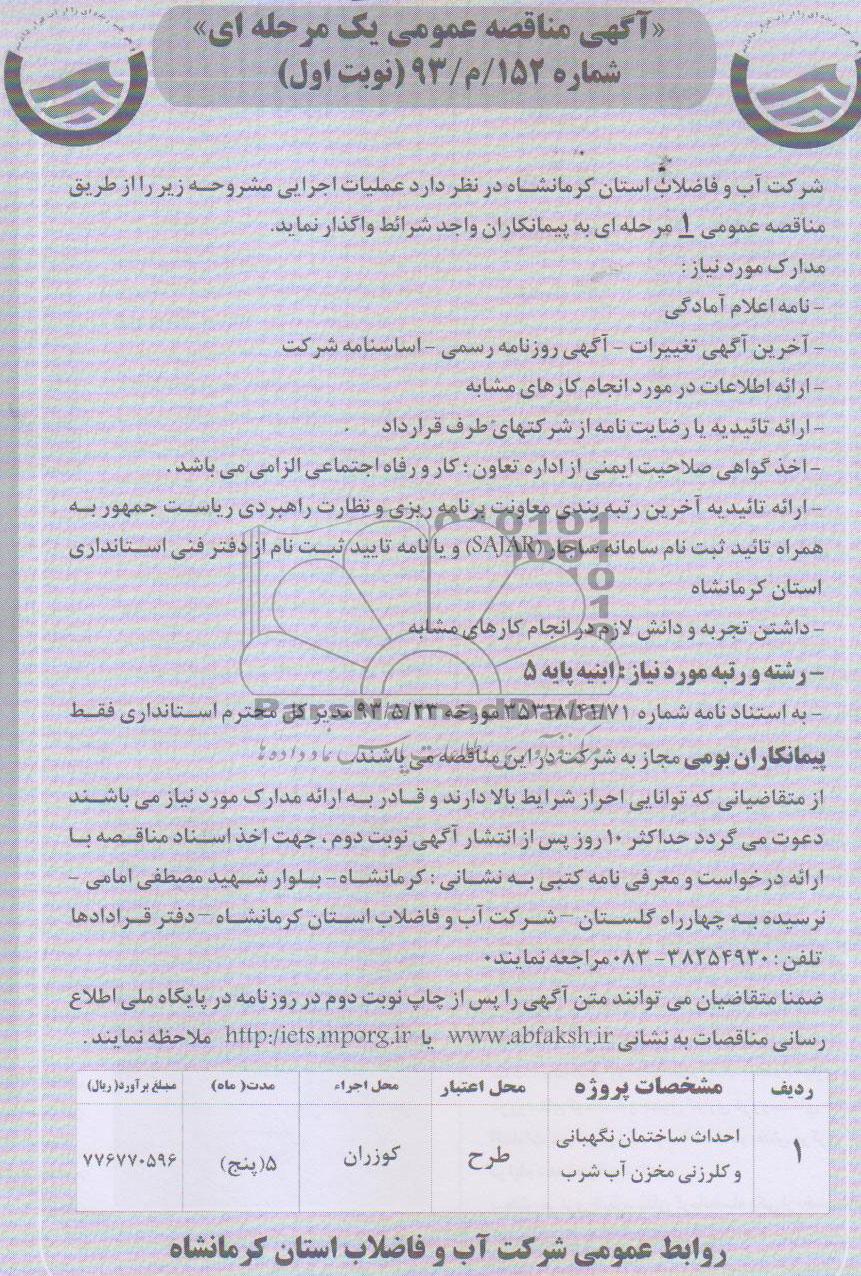 «آگهی مناقصه عمومی یک مرحله ای»
شماره ۱۵۲/م/۹۳ (نوبت اول)
شرکت آب و فاضلاب استان کرمانشاه در نظر دارد عملیات اجرایی مشروحه زیر را از طریق
مناقصه عمومی ۱ مرحله ای به پیمانکاران واجد شرائط واگذار نماید.
مدارک مورد نیاز :
- نامه اعلام آمادگی
- آخرین آگهی تغییرات - آگهی روزنامه رسمی - اساسنامه شرکت
- ارائه اطلاعات در مورد انجام کارهای مشابه
- ارائه تائیدیه یا رضایت نامه از شرکتهای طرف قرارداد
- اخذ گواهی صلاحیت ایمنی از اداره تعاون ؛ کار و رفاه اجتماعی الزامی می باشد .
- ارائه تائیدیه آخرین رتبه بندی معاونت برنامه ریزی و نظارت راهبردی ریاست جمهور به
همراه تائید ثبت نام سامانه ساجار (SAJAR) و یا نامه تایید ثبت نام از دفتر فنی استانداری
استان کرمانشاه
- داشتن تجربه و دانش لازم در انجام کارهای مشابه
- رشته و رتبه مورد نیاز : ابنیه پایه ۵
- به استناد نامه شماره ۳۵۳۱۸/۴۱/۷۱ مورخه ۹۳/۵/۲۳ مدیر کل محترم استانداری فقط
پیمانکاران بومی مجاز به شرکت در این مناقصه می باشند.
از متقاضیانی که توانایی احراز شرایط بالا دارند و قادر به ارائه مدارک مورد نیاز می باشند
دعوت می گردد حداکثر ۱۰ روز پس از انتشار آگهی نوبت دوم ، جهت اخذ اسناد مناقصه با
ارائه درخواست و معرفی نامه کتبی به نشانی : کرمانشاه - بلوار شهید مصطفی امامی -
نرسیده به چهارراه گلستان - شرکت آب و فاضلاب استان کرمانشاه - دفتر قرادادها
تلفن : ۳۸۲۵۴۹۳۰-۰۸۳ مراجعه نمایند.
ضمنا متقاضیان می توانند متن آگهی را پس از چاپ نوبت دوم در روزنامه در پایگاه ملی اطلاع
رسانی مناقصات به نشانی www.abfaksh.ir یا http:/iets.mporg.ir ملاحظه نمایند .
ردیف مشخصات پروژه محل اعتبار محل اجراء مدت( ماه) مبلغ برآورد( ریال)
۱ احداث ساختمان نگهبانی و کلرزنی مخزن آب شرب طرح کوزران ۵(پنج) ۷۷۶۷۷۰۵۹۶
روابط عمومی شرکت آب و فاضلاب استان کرمانشاه